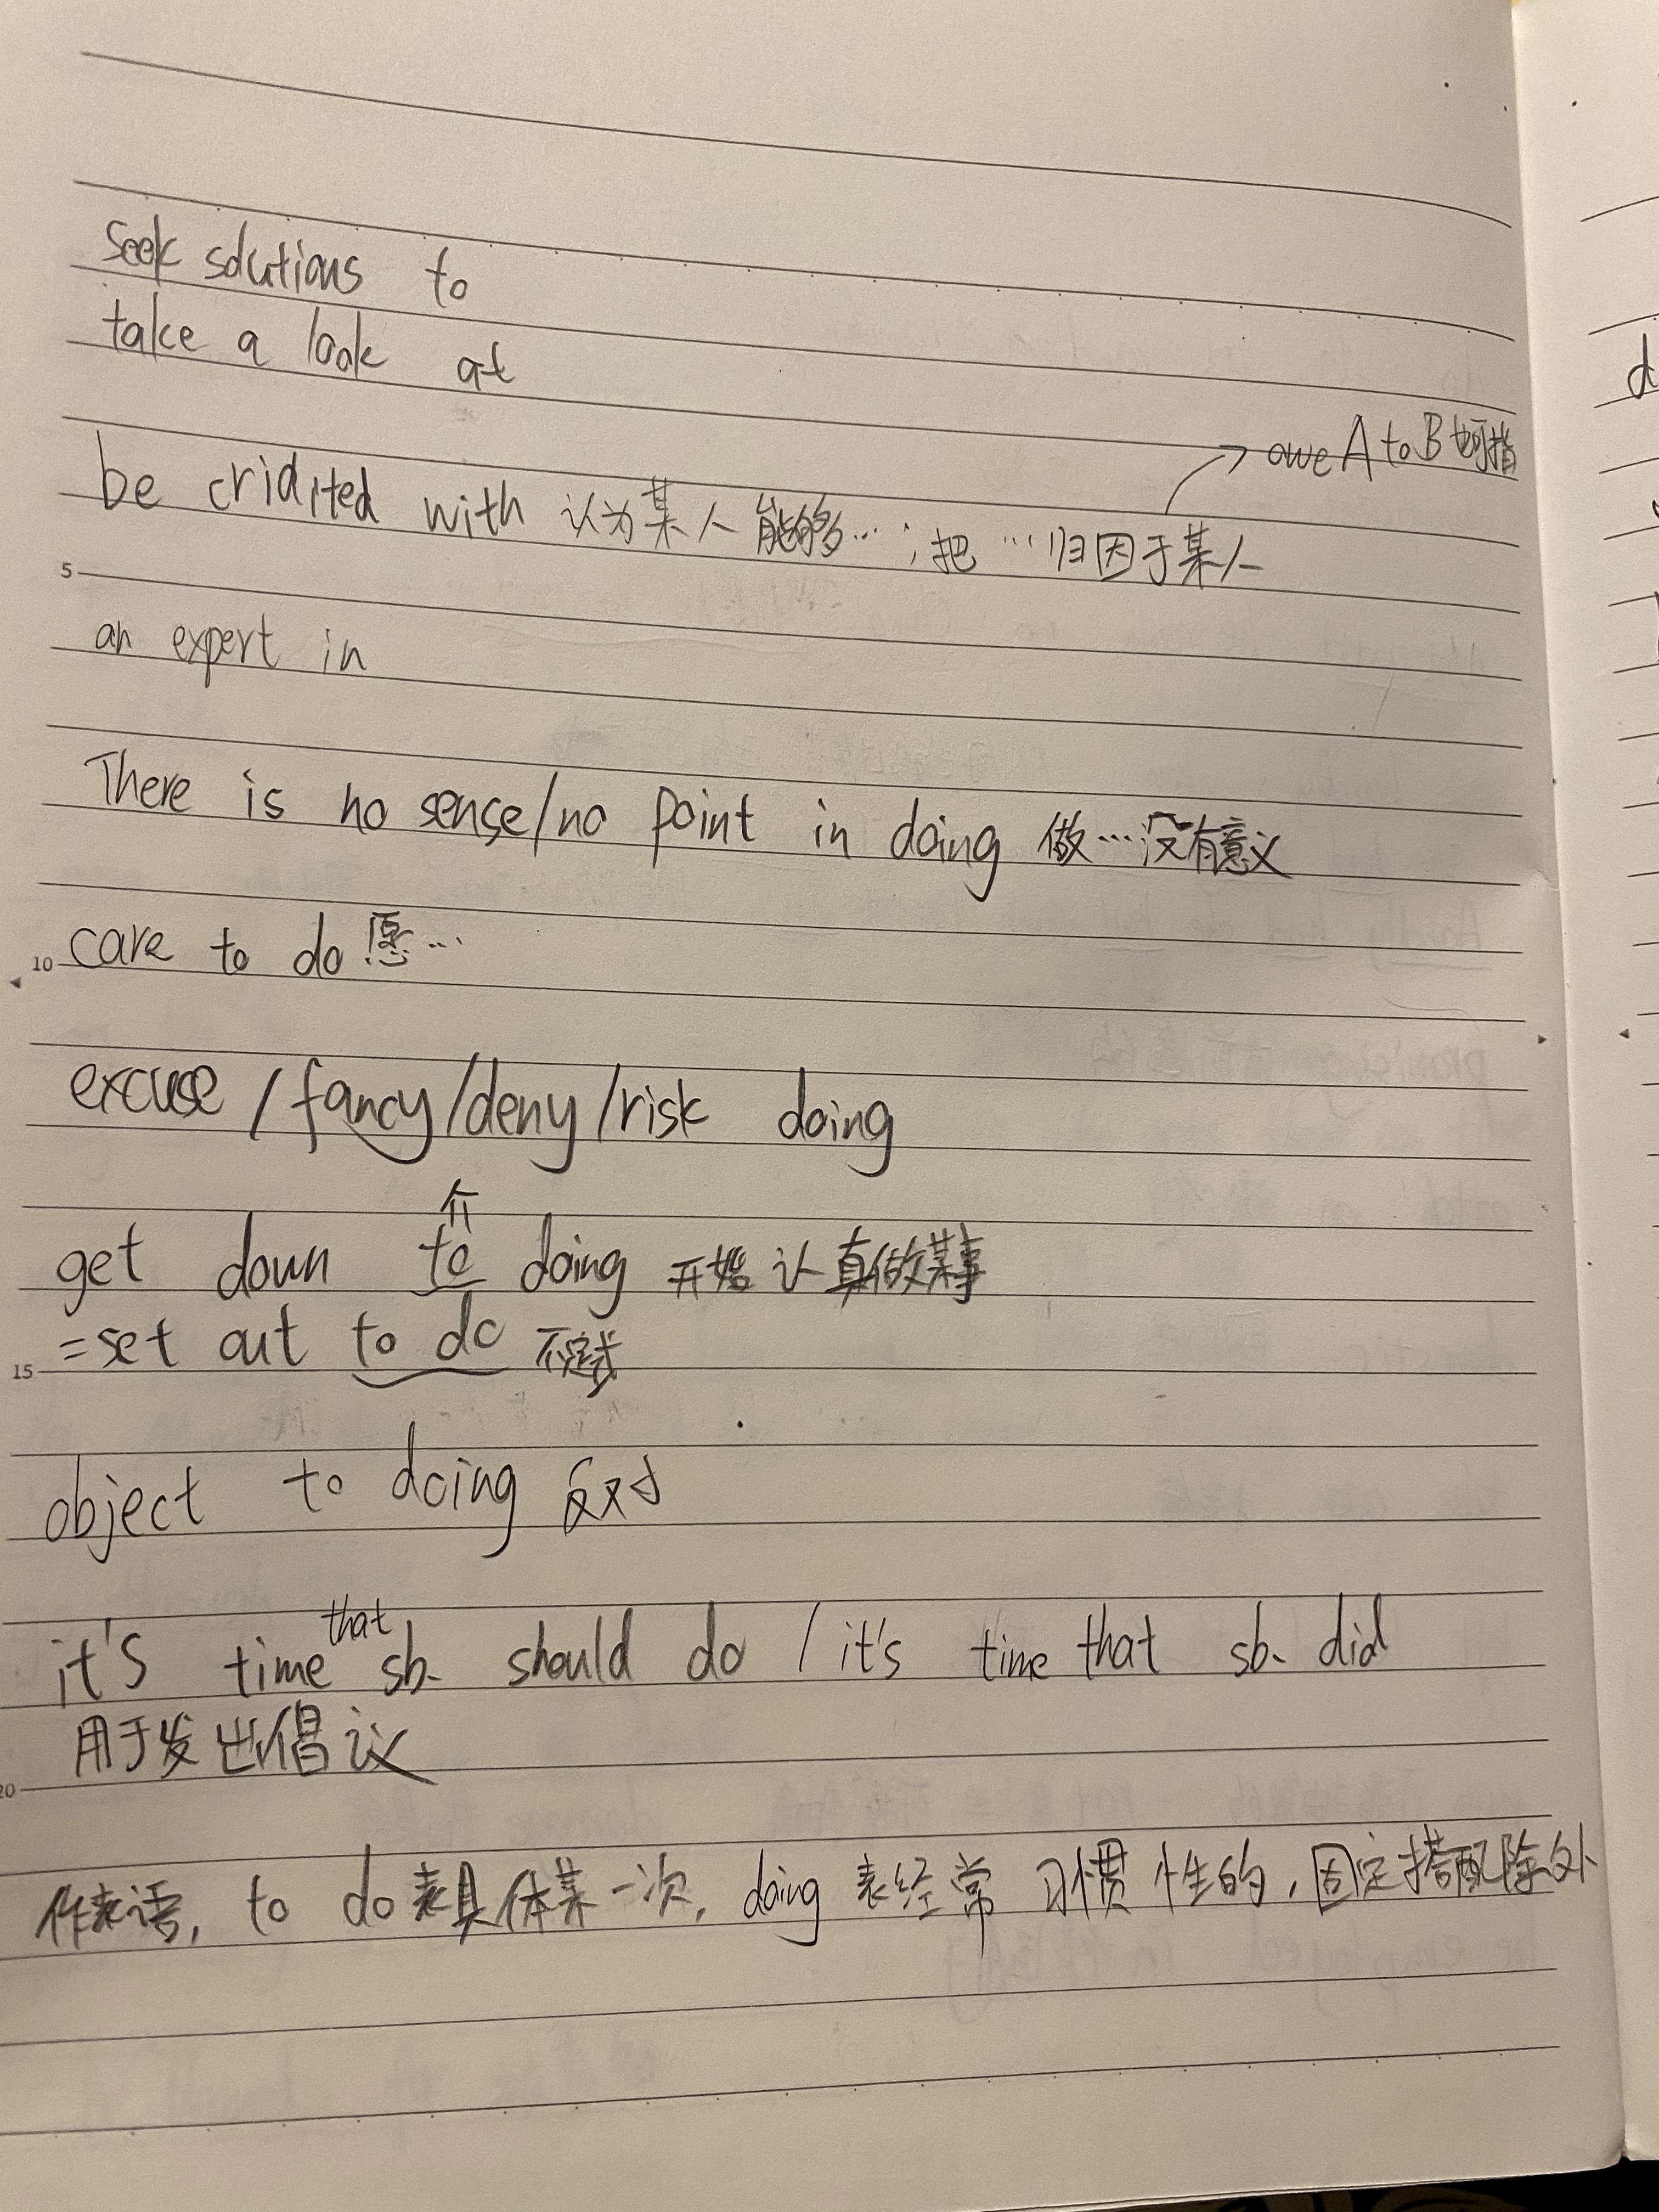 seek solutions to
take a look at
be cridited with 认为某人能够…；把…归因于某人
→ owe A to B
5
an expert in
There is no sense/no point in doing 做…没有意义
10
care to do 愿…
excuse / fancy/deny/risk doing
介
get down to doing 开始认真做某事
15
= set out to do
object to doing 反对
that
it's time sb. should do / it's time that sb. did
用于发出倡议
20
作表语, to do 表具体某一次, doing 表经常 习惯性的, 固定搭配除外
d